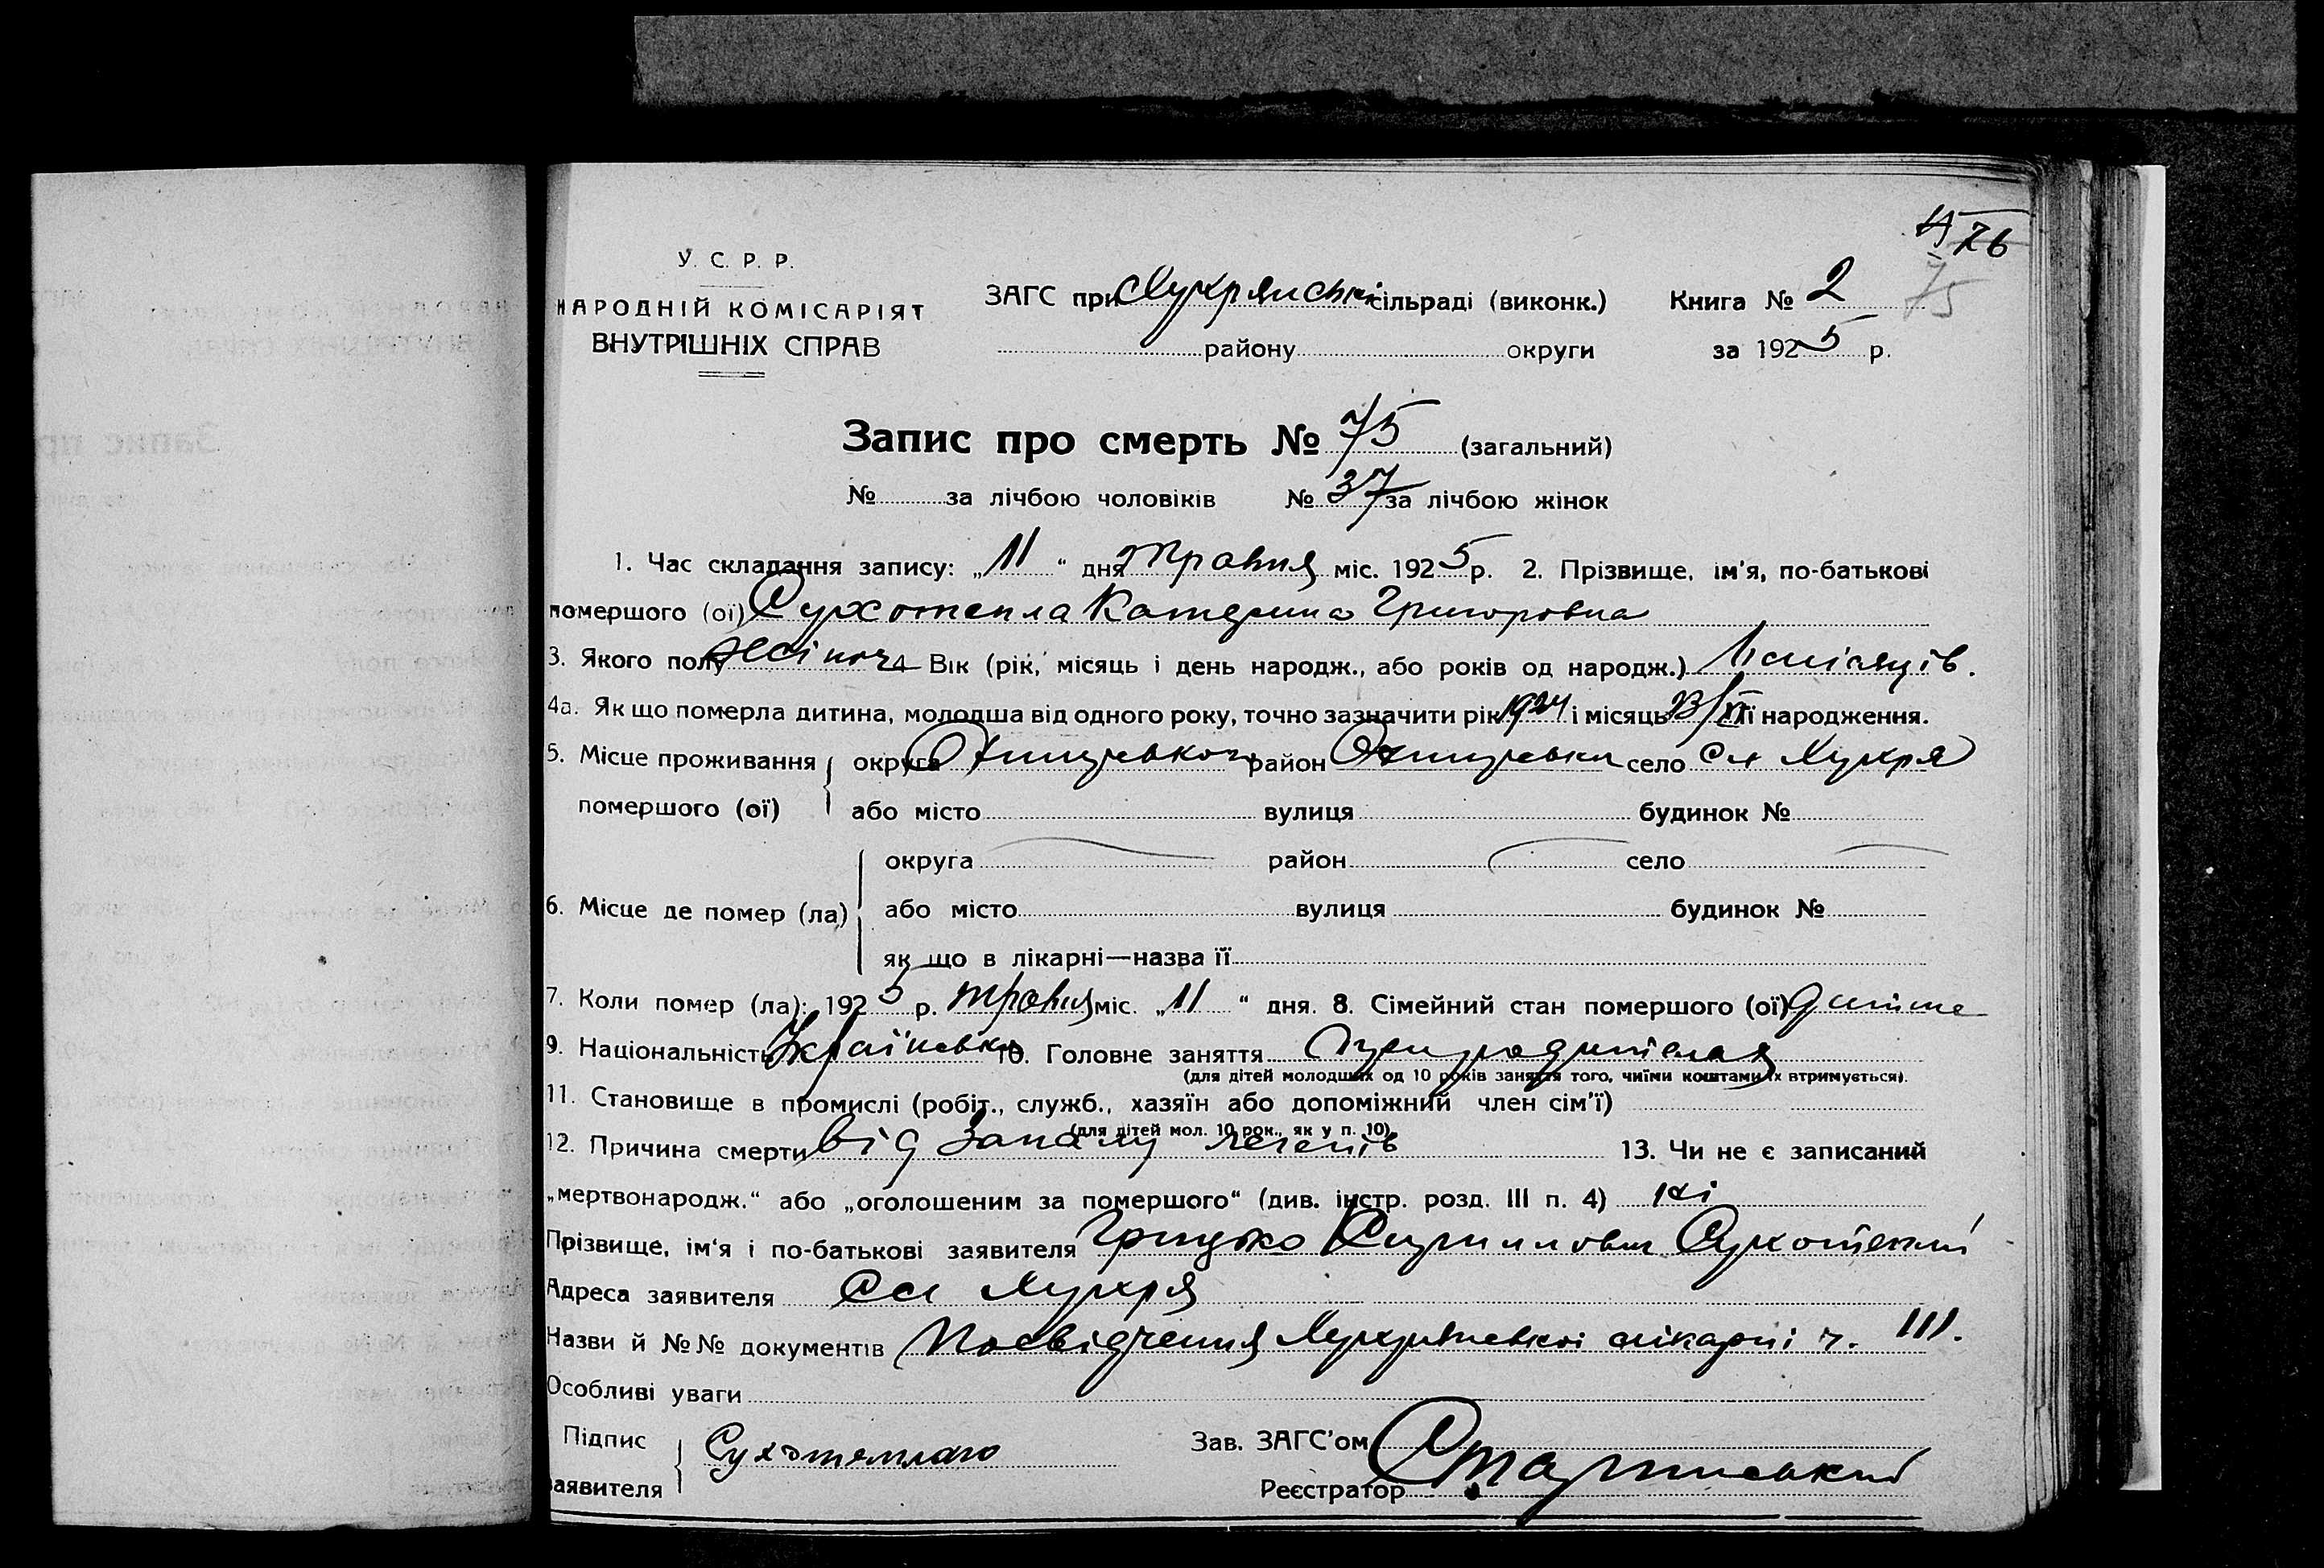 76
75
У. С. Р. Р.
НАРОДНІЙ КОМІСАРІЯТ
ВНУТРІШНІХ СПРАВ
ЗАГС при сільраді (виконк.) Книга № 2
району округи за 1925 р.
Запис про смерть № 75 (загальний)
№ за лічбою чоловіків № 37 за лічбою жінок
1. Час складання запису: „11“ дня Травня міс. 1925 р. 2. Прізвище, ім'я, по-батькові
помершого (ої) Сухотепла Катерина Григоровна
3. Якого полу жіноч 4 Вік (рік, місяць і день народж., або років од народж.) місяців.
4а. Як що померла дитина, молодша від одного року, точно зазначити рік 1924 і місяць 23/ її народження.
5. Місце проживання округа район село Сл Мухря
помершого (ої) або місто вулиця будинок №
округа район село
6. Місце де помер (ла) або місто вулиця будинок №
як що в лікарні—назва її
7. Коли помер (ла): 1925 р. травня міс. „11“ дня. 8. Сімейний стан помершого (ої) дитина
9. Національність Українська 10. Головне заняття
(для дітей молодших од 10 років заняття того, чиїми коштами їх втримується).
11. Становище в промислі (робіт., служб., хазяїн або допоміжний член сім'ї)
(для дітей мол. 10 рок., як у п. 10)
12. Причина смерти від Запалу легенів 13. Чи не є записаний
„мертвонародж.“ або „оголошеним за помершого“ (див. інстр. розд. III п. 4) ні
Прізвище, ім'я і по-батькові заявителя Грицько Кириллович Сухотеплий
Адреса заявителя Сл Мухря
Назви й №№ документів Посвідчення лікарні ч. 111.
Особливі уваги
Підпис Зав. ЗАГС'ом
Сухотепла
заявителя Реєстратор